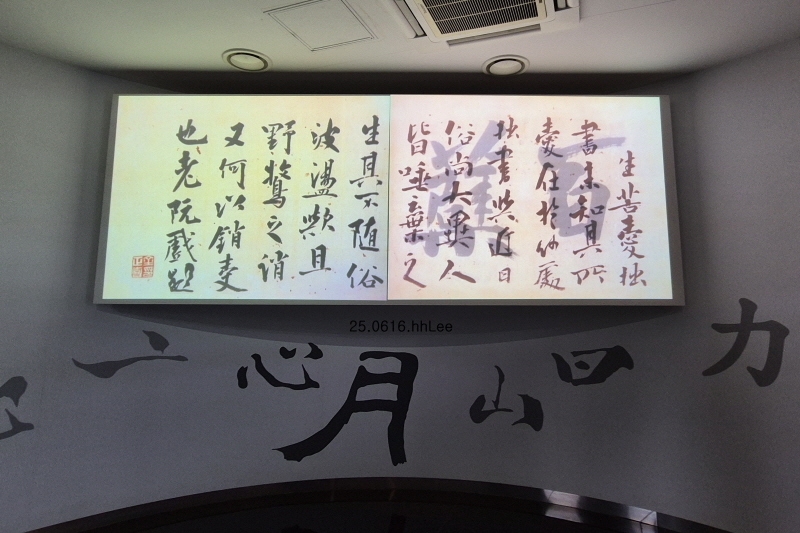 生苦愛拙
書未知其所
愛在於何處
拙書與近日
俗尚大異人
皆唾棄之
生其不隨俗
波盪歟且
野鶩之誚
又何以銷受
也老阮戲題
25.0616.hhLee
心
月
山
日
力